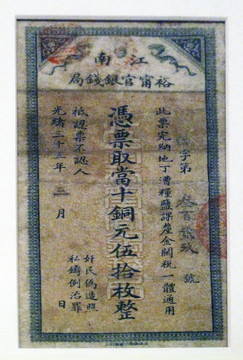 江南
裕甯官銀錢局
字第 號
此票完納地丁漕糧鹽課釐金關稅一體通用
憑票取當十銅元伍拾枚整
祇認票不認人
光緒三十三年三月 日
奸民偽造照
私鑄例治罪